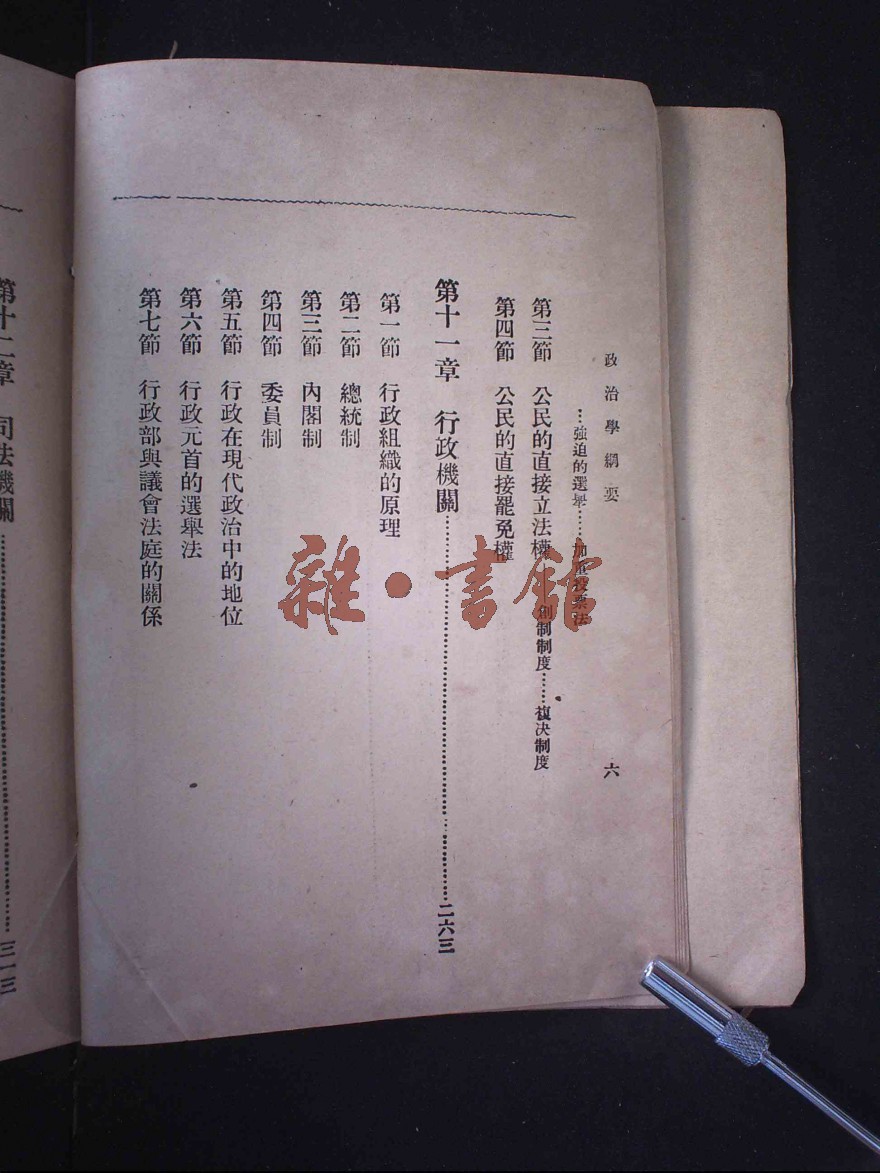 政治學綱要
六
…強迫的選舉……加重投票法
第三節 公民的直接立法權 創制制度……複决制度
第四節 公民的直接罷免權
第十一章 行政機關……二六三
第一節 行政組織的原理
第二節 總統制
第三節 內閣制
第四節 委員制
第五節 行政在現代政治中的地位
第六節 行政元首的選舉法
第七節 行政部與議會法庭的關係
第十二章 司法機關……三一三
雜·書館